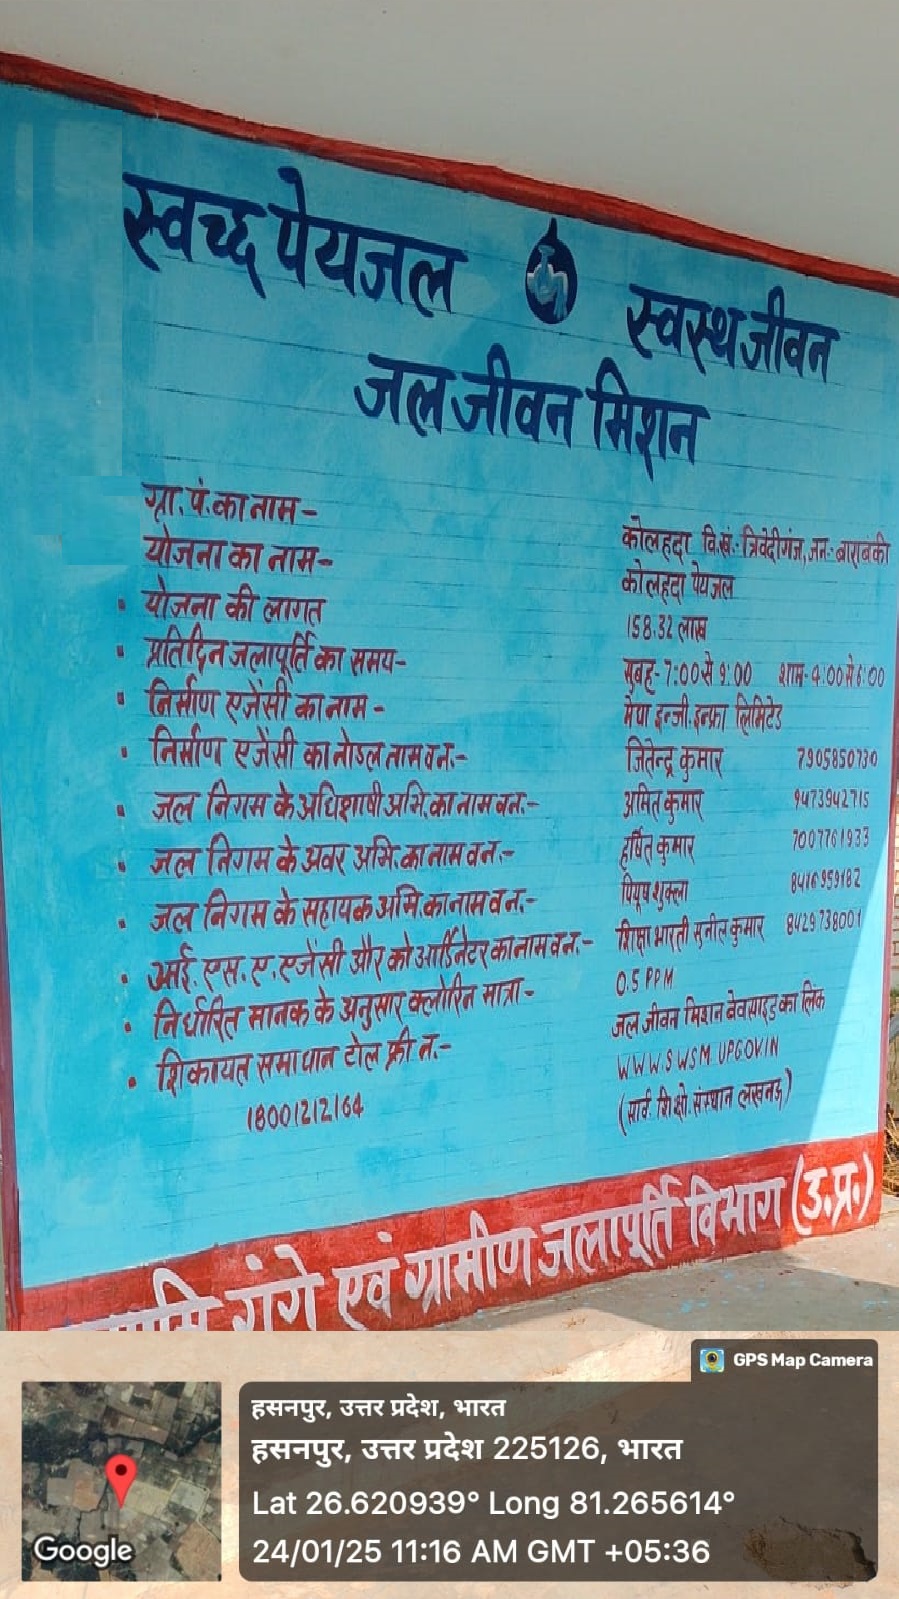 स्वच्छ पेयजल
स्वस्थ जीवन
जल जीवन मिशन
ग्रा. पं. का नाम - कोलहदा वि.खं.- त्रिवेदीगंज, जन.- बाराबंकी
योजना का नाम - कोलहदा पेयजल
• योजना की लागत 158.32 लाख
• प्रतिदिन जलापूर्ति का समय- सुबह- 7:00 से 9:00 शाम- 4:00 से 6:00
• निर्माण एजेंसी का नाम - मेघा इन्जी. इन्फ्रा लिमिटेड
• निर्माण एजेंसी का नोडल नाम व न.- जितेन्द्र कुमार 7905850730
• जल निगम के अधिशाषी अभि. का नाम व न.- अमित कुमार 9473942715
• जल निगम के अवर अभि. का नाम व न.- हर्षित कुमार 7007761933
• जल निगम के सहायक अभि. का नाम व न.- पियूष शुक्ला 8416959182
• आई. एस. ए. एजेंसी और को आर्डिनेटर का नाम व न.- शिक्षा भारती सुनील कुमार 8429738001
• निर्धारित मानक के अनुसार क्लोरिन मात्रा - 0.5 PPM
• शिकायत समाधान टोल फ्री न.- जल जीवन मिशन वेबसाइड का लिंक
18001212164 WWW.SWSM.UPGOV.IN
(सार्व. शि. क्षो. संस्थान लखनऊ)
नमामि गंगे एवं ग्रामीण जलापूर्ति विभाग (उ.प्र.)
GPS Map Camera
हसनपुर, उत्तर प्रदेश, भारत
हसनपुर, उत्तर प्रदेश 225126, भारत
Lat 26.620939° Long 81.265614°
24/01/25 11:16 AM GMT +05:36
Google